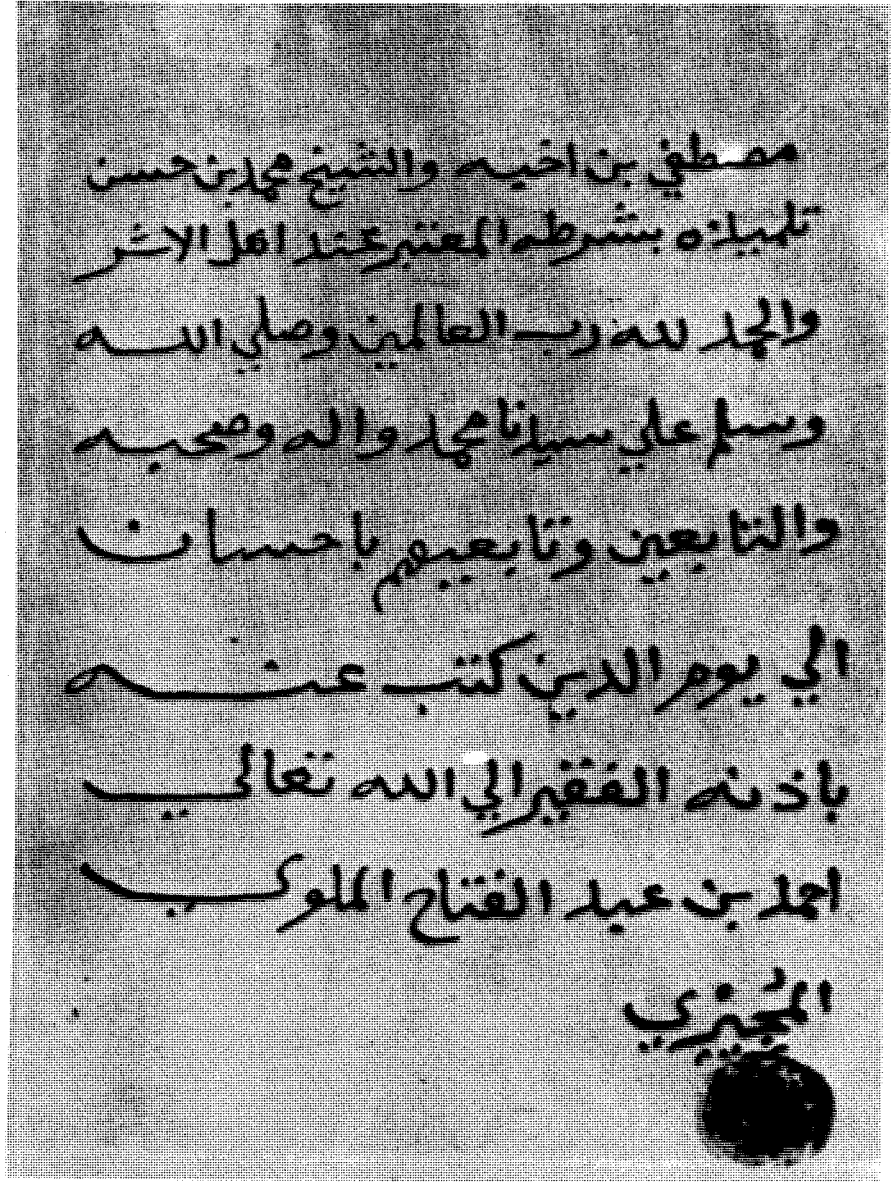 مصطفي بن اخيه والشيخ محمد بن حسن
تلميذه بشرطه المعتبر عند اهل الاثر
والحمد لله رب العالمين وصلي الله
وسلم علي سيدنا محمد واله وصحبه
والتابعين وتابعيهم باحسان
الي يوم الدين كتب عنه
باذنه الفقير الي الله تعالي
احمد بن عبد الفتاح الملوي
المجيزي